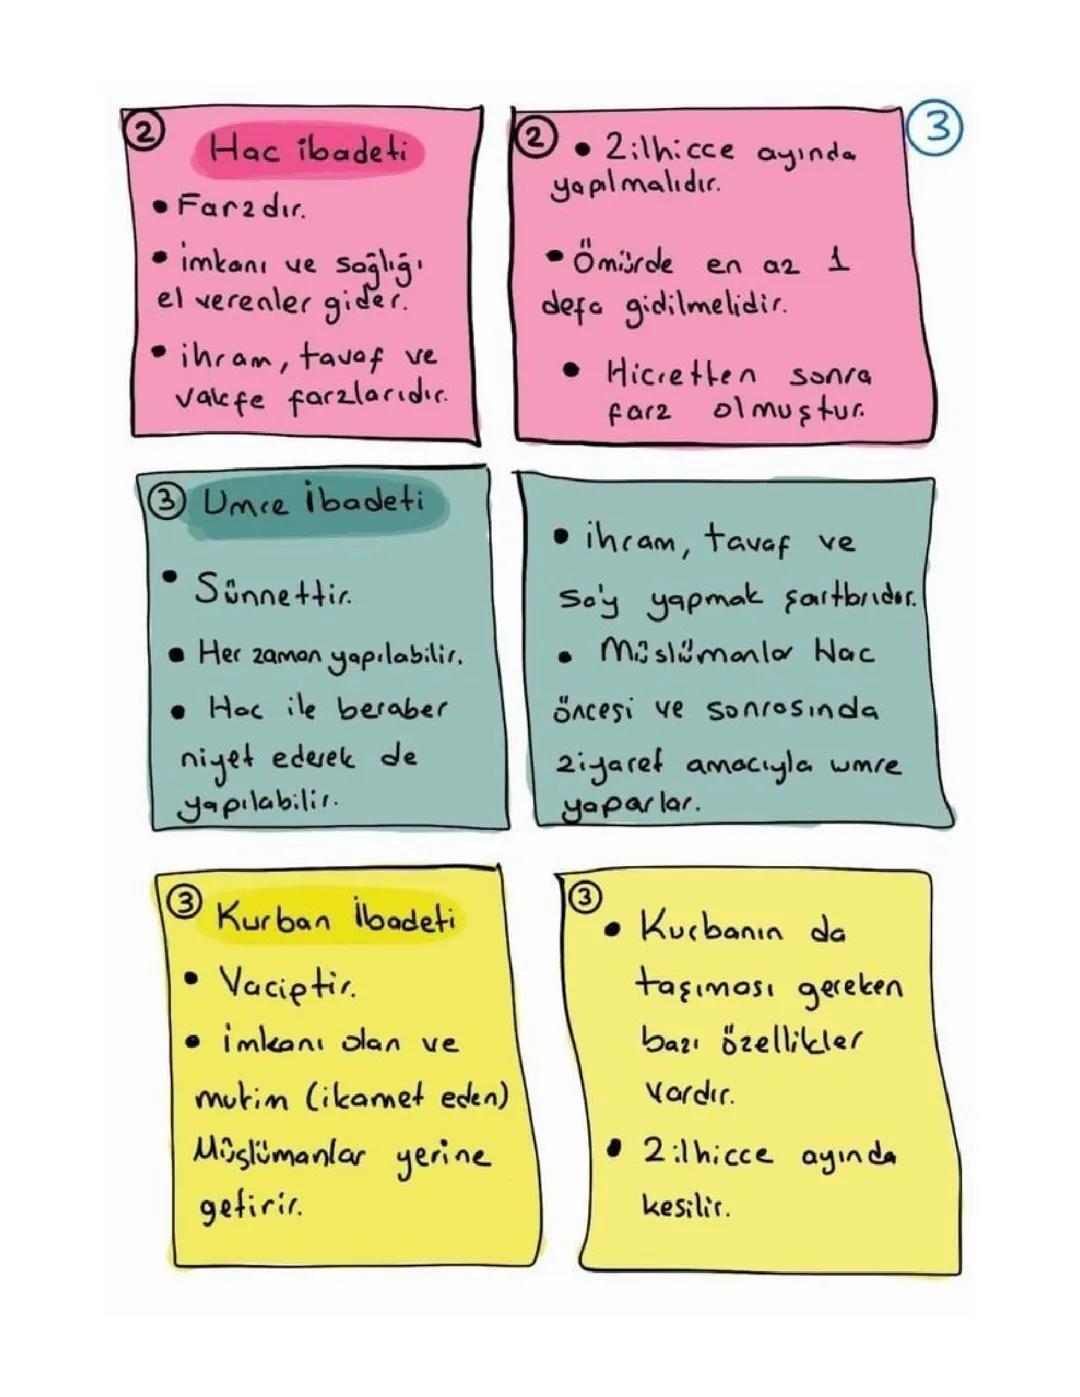 2
Hac ibadeti
• Farzdır.
• imkanı ve sağlığı
el verenler gider.
• ihram, tavaf ve
vakfe farzlarıdır.
3
2
• Zilhicce ayında
yapılmalıdır.
• Ömürde en az 1
defa gidilmelidir.
• Hicretten sonra
farz olmuştur.
3 Umre İbadeti
• Sünnettir.
• Her zaman yapılabilir.
• Hac ile beraber
niyet ederek de
yapılabilir.
• ihram, tavaf ve
sa'y yapmak şartlarıdır.
• Müslümanlar Hac
öncesi ve sonrasında
ziyaret amacıyla umre
yaparlar.
3
Kurban İbadeti
• Vaciptir.
• imkanı olan ve
mukim (ikamet eden)
Müslümanlar yerine
getirir.
3
• Kurbanın da
taşıması gereken
bazı özellikler
vardır.
• Zilhicce ayında
kesilir.